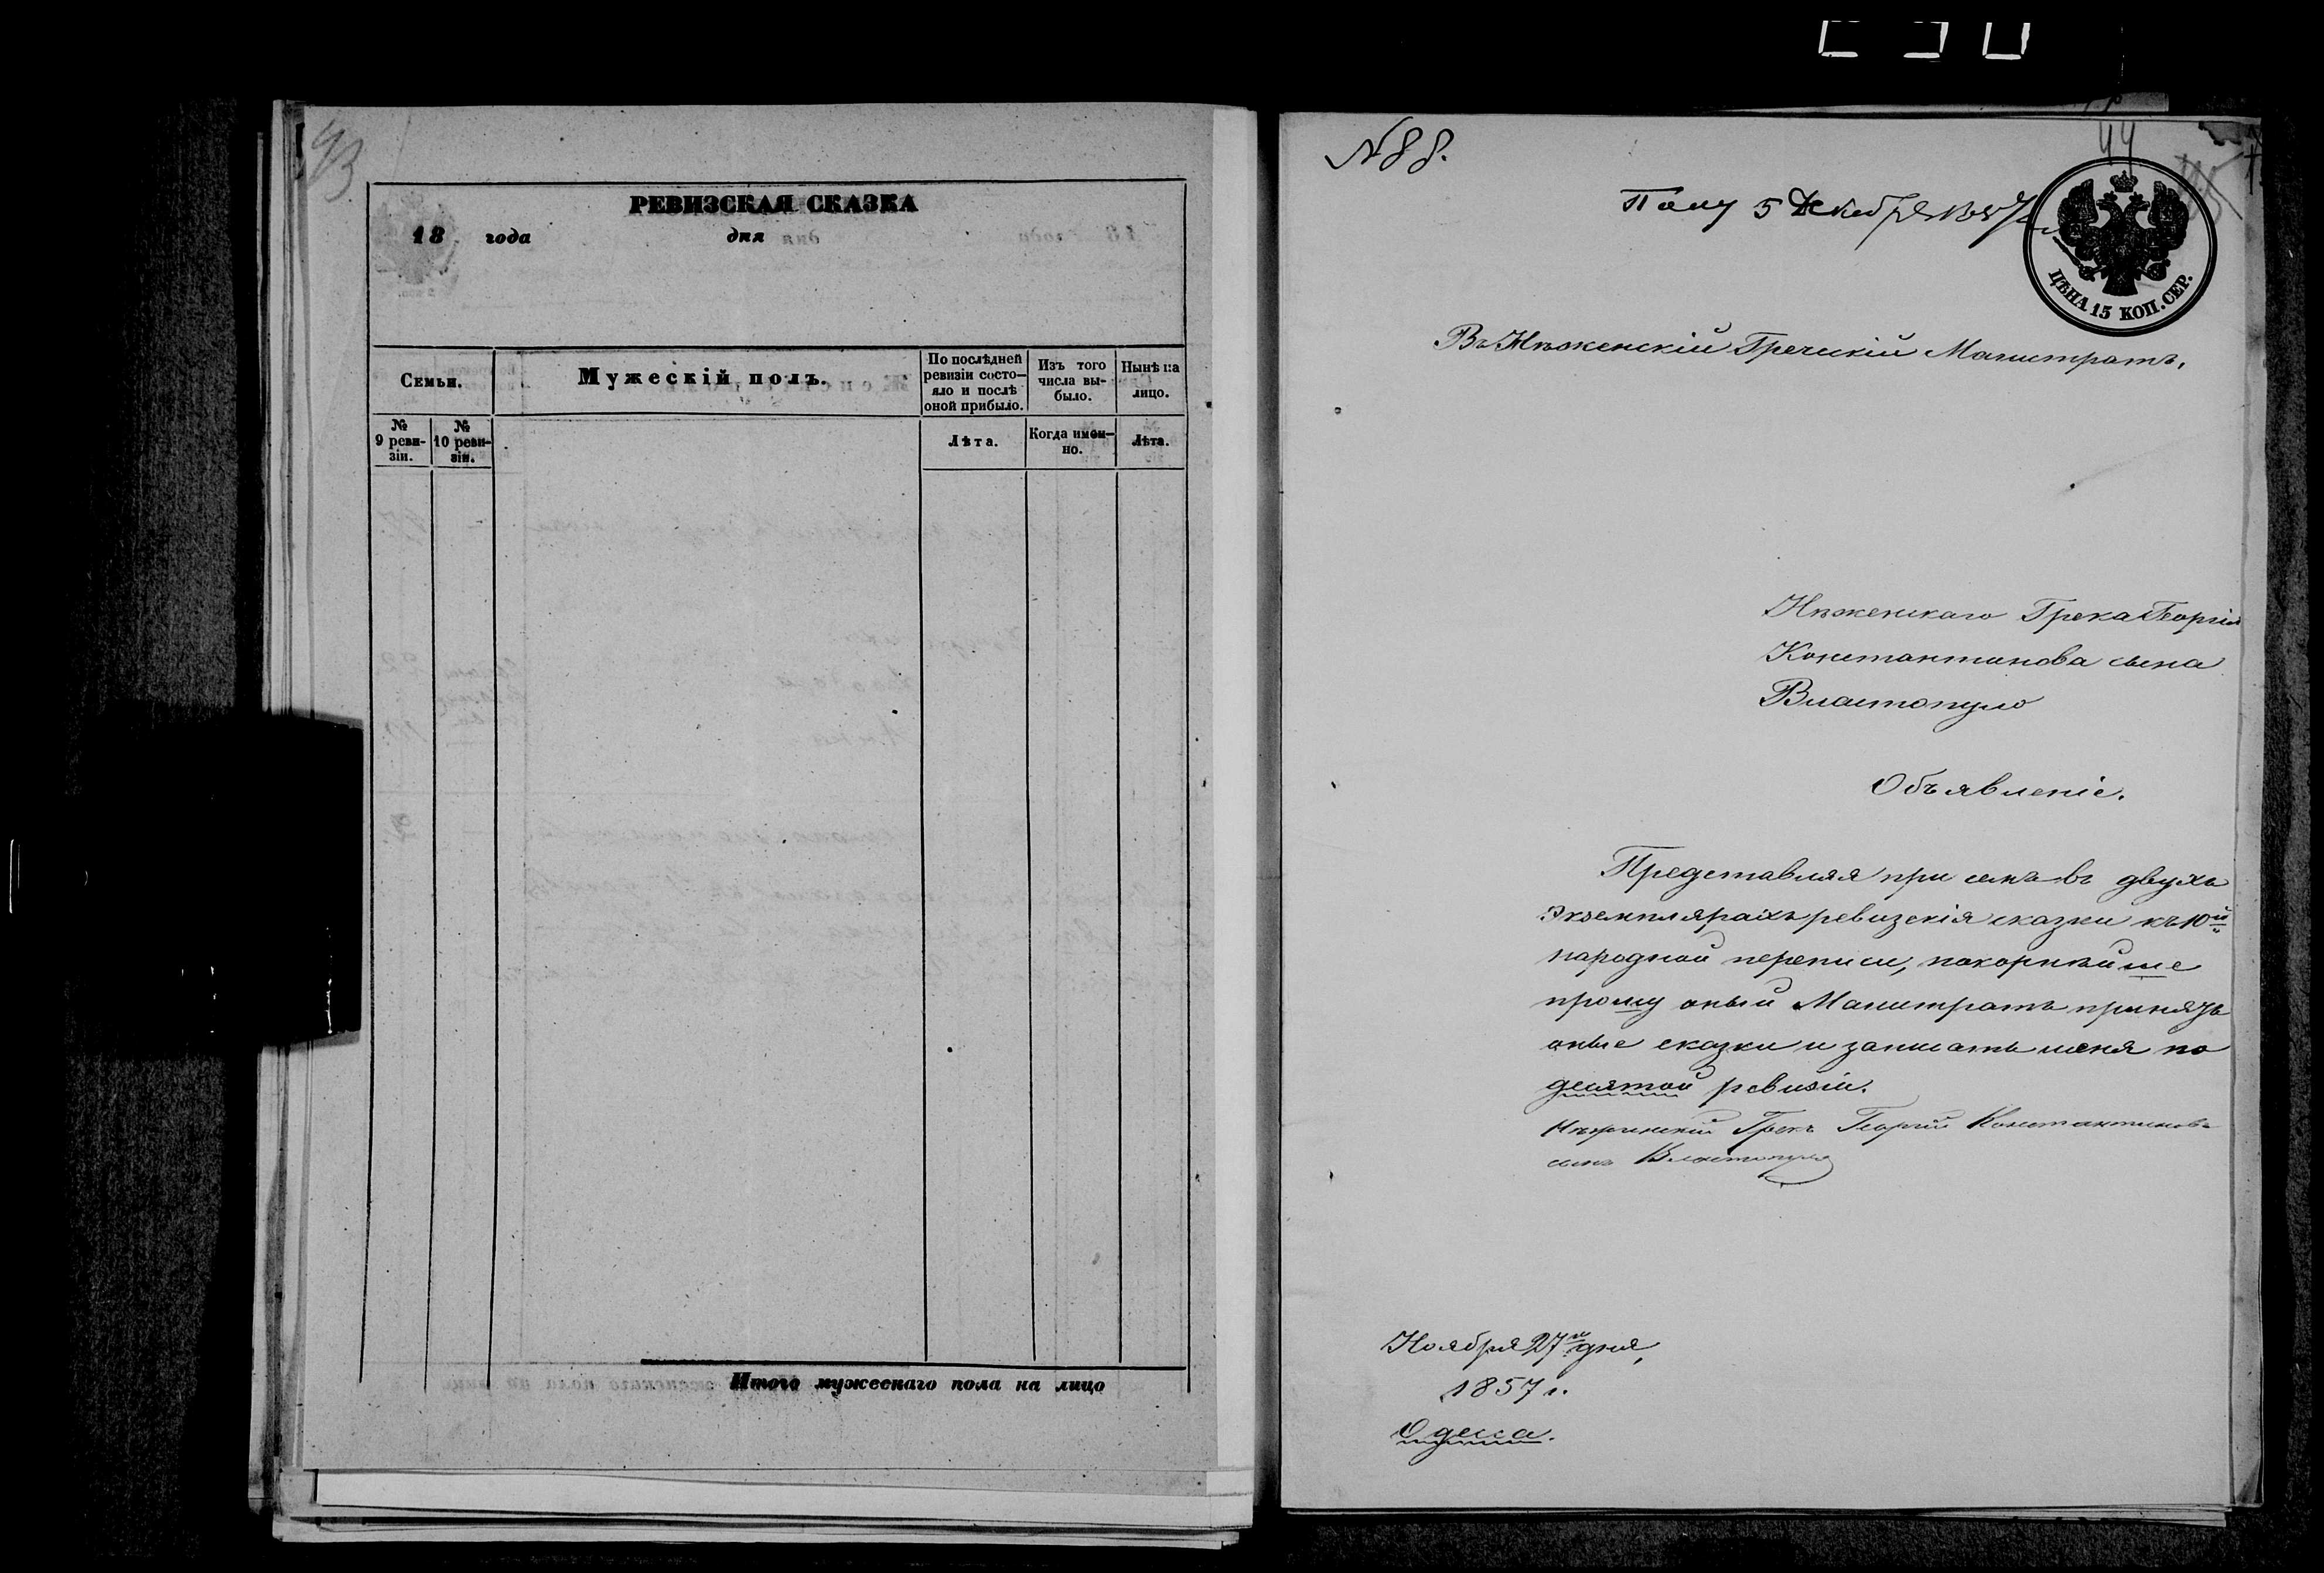 93
РЕВИЗСКАЯ СКАЗКА
18 года дня
Семьи.
Мужескій полъ.
По послѣдней ревизіи состо-
яло и послѣ оной прибыло.
Изъ того числа вы-
было.
Нынѣ на лицо.
№ 9 реви-
зіи.
№ 10 реви-
зіи.
Лѣта.
Когда имен-
но.
Лѣта.
Итого мужескаго пола на лицо
№ 88.
44
Полу 5 Декабря 1857
ЦѢНА 15 КОП. СЕР.
Въ Нѣженскій Греческій Магистратъ.
Нѣженскаго Грека Георгія
Константинова сына
Властопуло
Объявленіе.
Представляя при семъ въ двухъ
экземплярахъ ревизскія сказки къ 10й
народной переписи, покорнѣйше
прошу оный Магистратъ принять
оные сказки и записать меня по
десятой ревизіи.
Нѣжинскій Грекъ Георгій Константиновъ
сынъ Властопуло
Ноября 27го дня,
1857 г.
Одесса.